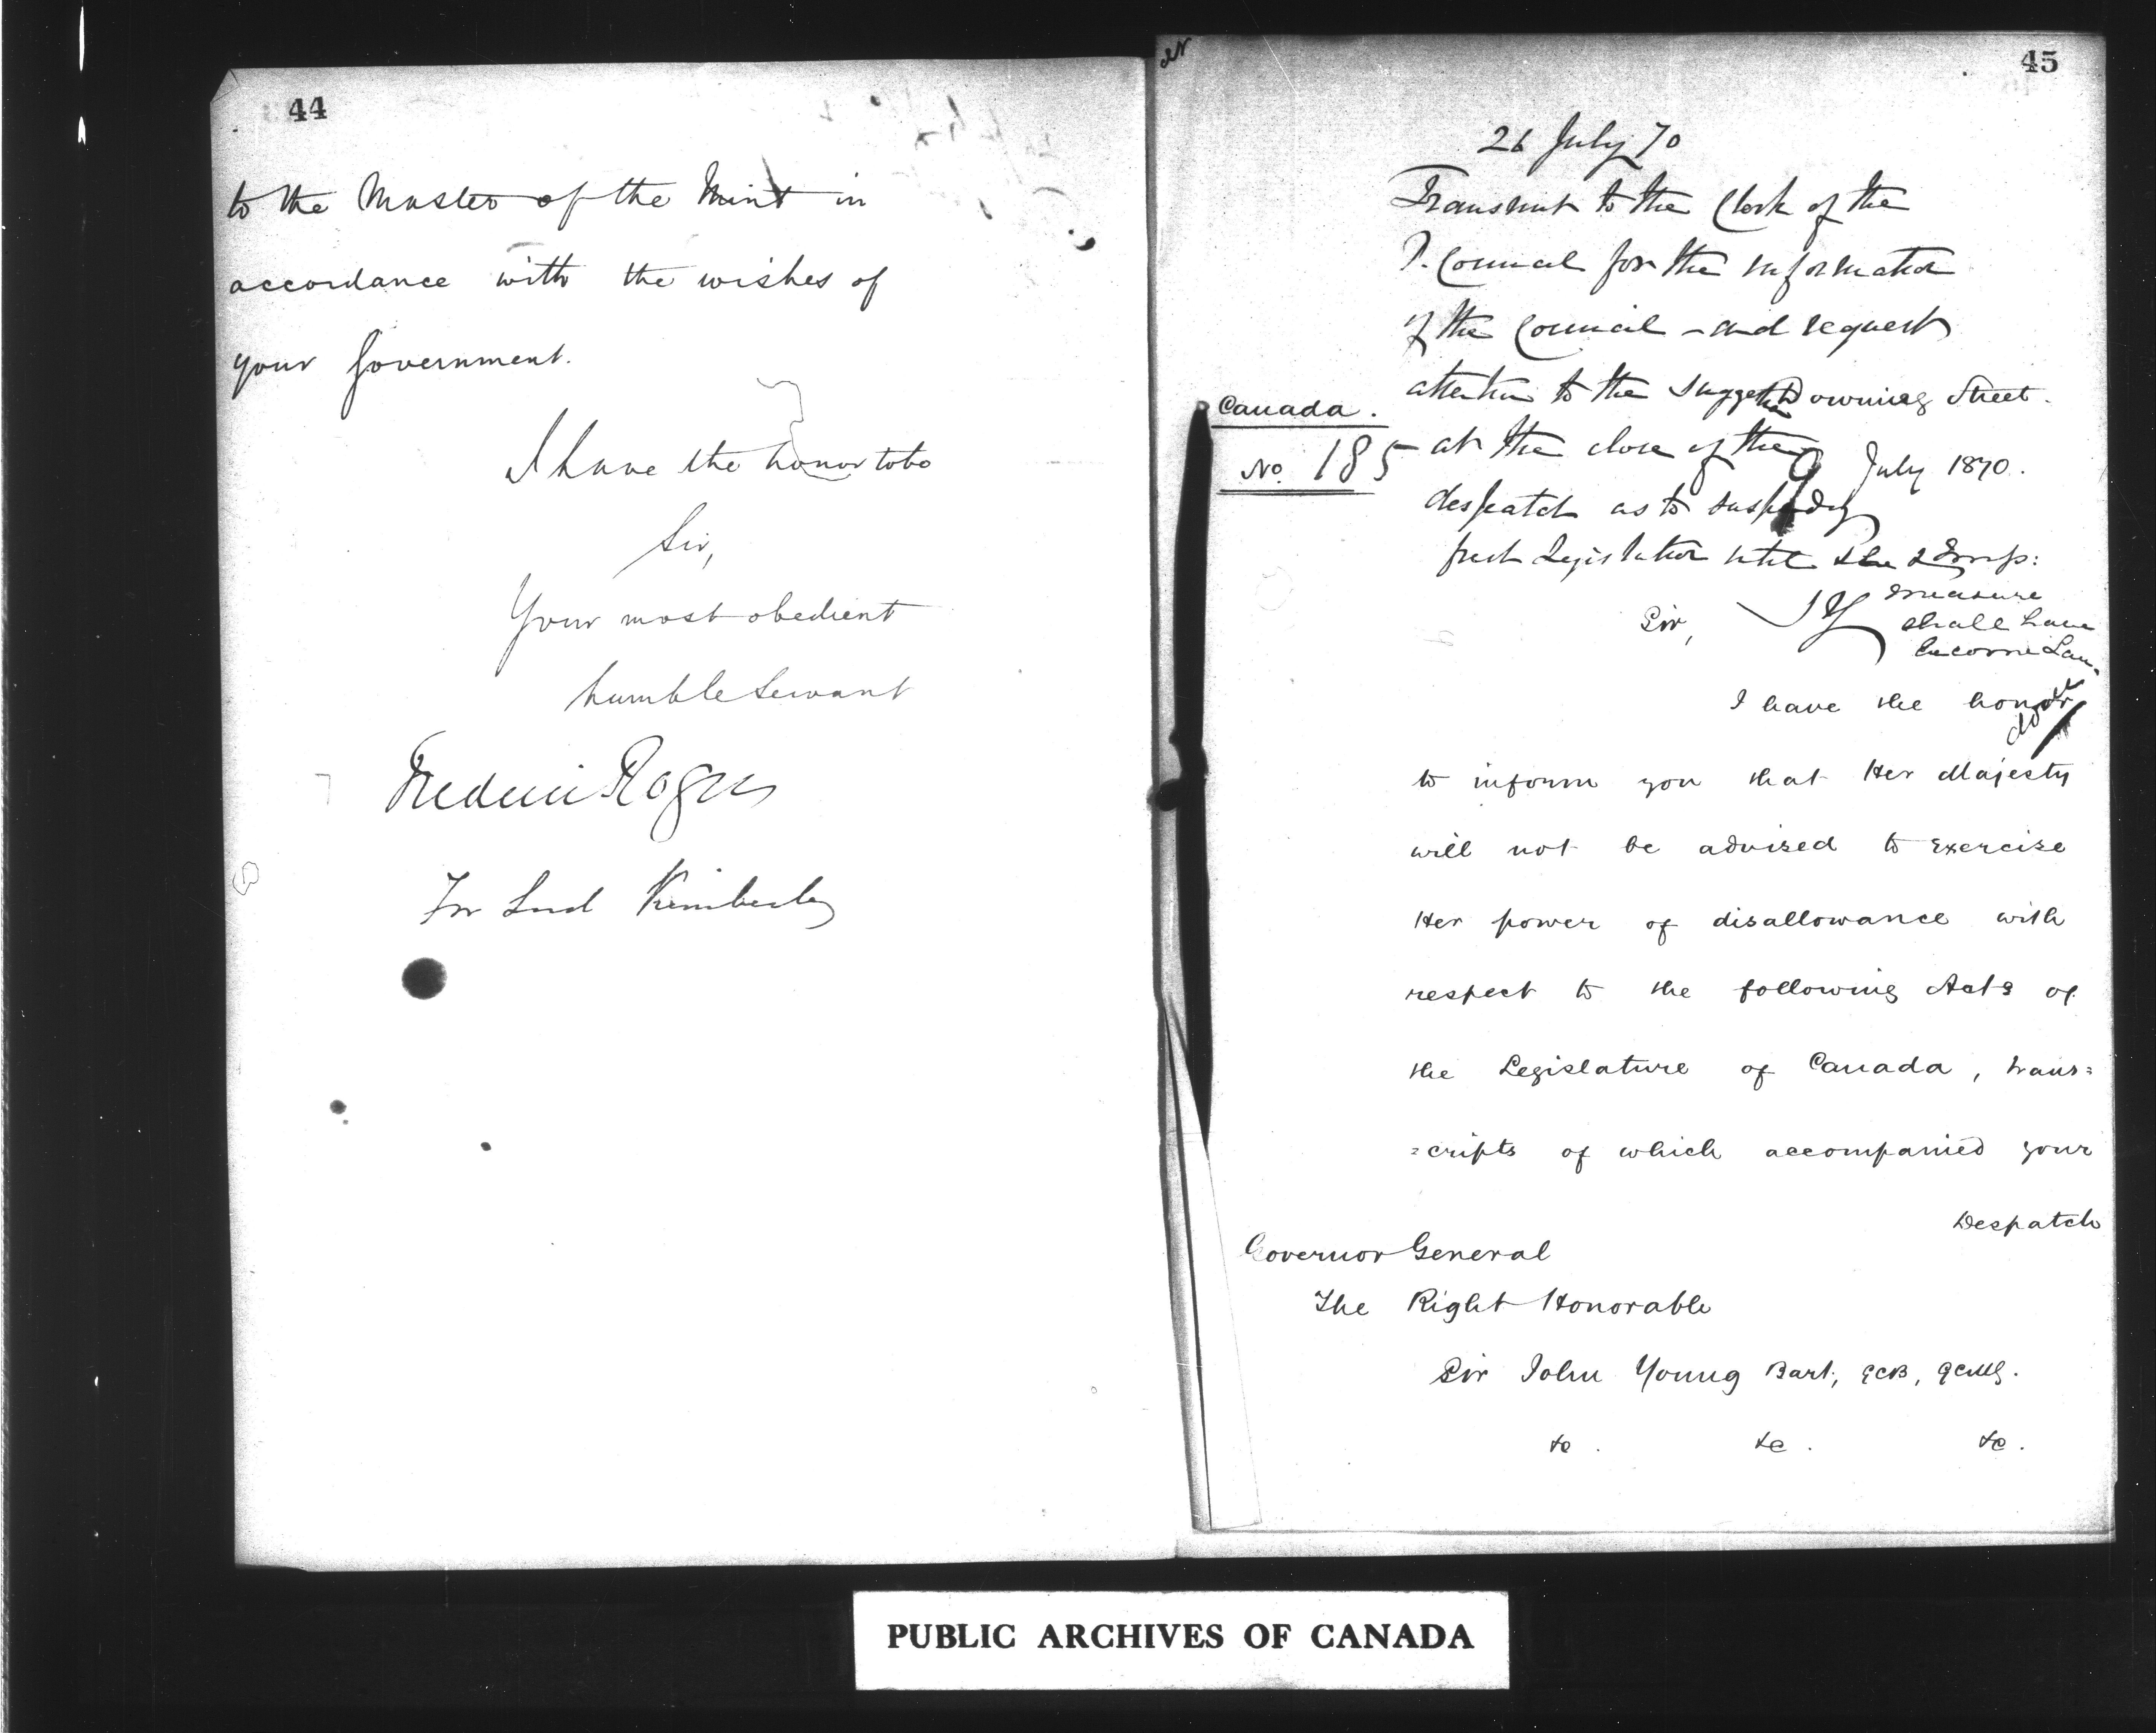 44
to the Master of the Mint in
accordance with the wishes of
your Government.
I have the honor to be
Sir,
Your most obedient
humble Servant
Frederic Rogers
For Lord Kimberley
45
26 July 70
Transmit to the Clerk of the
P. Council for the information
of the Council - and request
attention to the suggestion
at the close of the
despatch as to suspending
fresh Legislation until the Imp:
measure
shall have
become Law.
JY
done
Canada.
No. 185
Downing Street.
9 July 1870.
Sir,
I have the honor
to inform you that Her Majesty
will not be advised to exercise
Her power of disallowance with
respect to the following Acts of
the Legislature of Canada, trans=
=cripts of which accompanied your
Despatch
Governor General
The Right Honorable
Sir John Young Bart, GCB, GCMG.
&c. &c. &c.
PUBLIC ARCHIVES OF CANADA